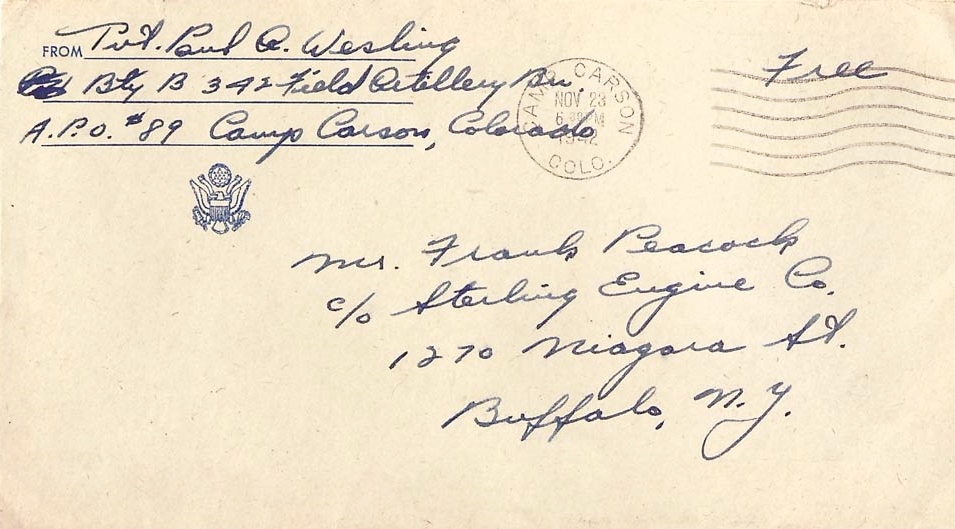 FROM Pvt. Paul A. Wesling
Bty B 342 Field Artillery Bn.
A.P.O. #89 Camp Carson, Colorado
CAMP CARSON
NOV 23
6 PM
1942
COLO.
Free
Mr. Frank Peacock
c/o Sterling Engine Co.
1270 Niagara St.
Buffalo, N.Y.